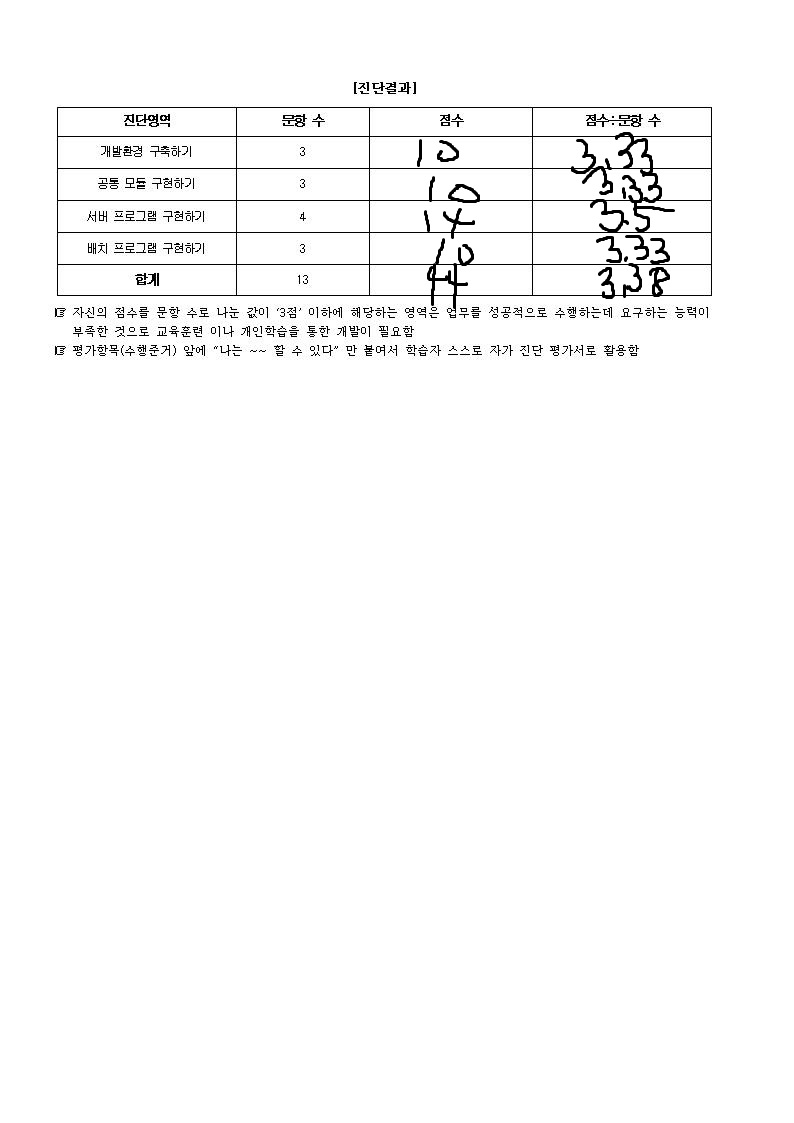 [진단결과]
진단영역 문항 수 점수 점수÷문항 수
개발환경 구축하기 3 10 3.33
공통 모듈 구현하기 3 10 3.33
서버 프로그램 구현하기 4 14 3.5
배치 프로그램 구현하기 3 10 3.33
합계 13 44 3.38
☞ 자신의 점수를 문항 수로 나눈 값이 ‘3점’ 이하에 해당하는 영역은 업무를 성공적으로 수행하는데 요구하는 능력이
부족한 것으로 교육훈련 이나 개인학습을 통한 개발이 필요함
☞ 평가항목(수행준거) 앞에 “나는 ~~ 할 수 있다” 만 붙여서 학습자 스스로 자가 진단 평가서로 활용함